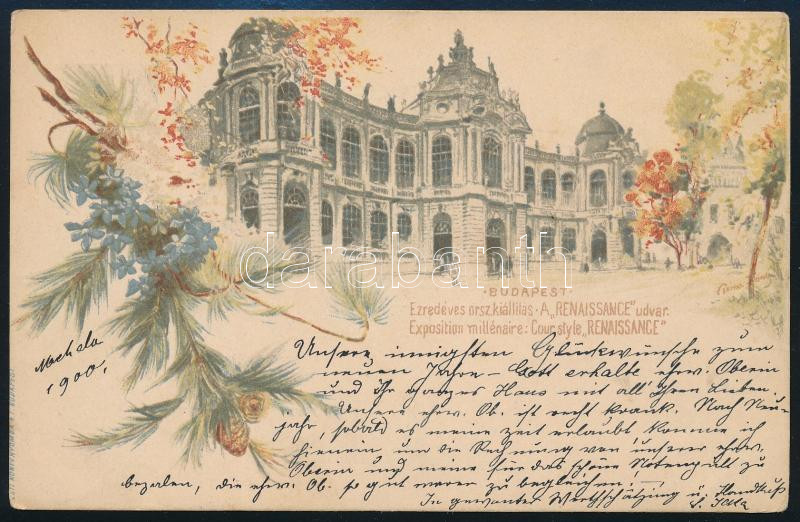 ·BUDAPEST·
Ezredéves orsz. kiállítás · A „RENAISSANCE" udvar.
Exposition millénaire: Cour style „RENAISSANCE"
darabanth
1900.
Unsere innigsten Glückwünsche zum
neuen Jahre – Gott erhalte ehrw. Oberin
und ihr ganzes Haus mit all' Ihren Lieben.
Unsere ehrw. Ob. ist recht krank. Nach Neu-
jahr, sobald es meine Zeit erlaubt komme ich
hinein, um die Rechnung von unserer ehrw.
Oberin und meine für das schöne Notenpult zu
bezalen, die ehrw. Ob. so gut war zu begleichen. —
In gewohnter Wertschätzung u. Handkuß